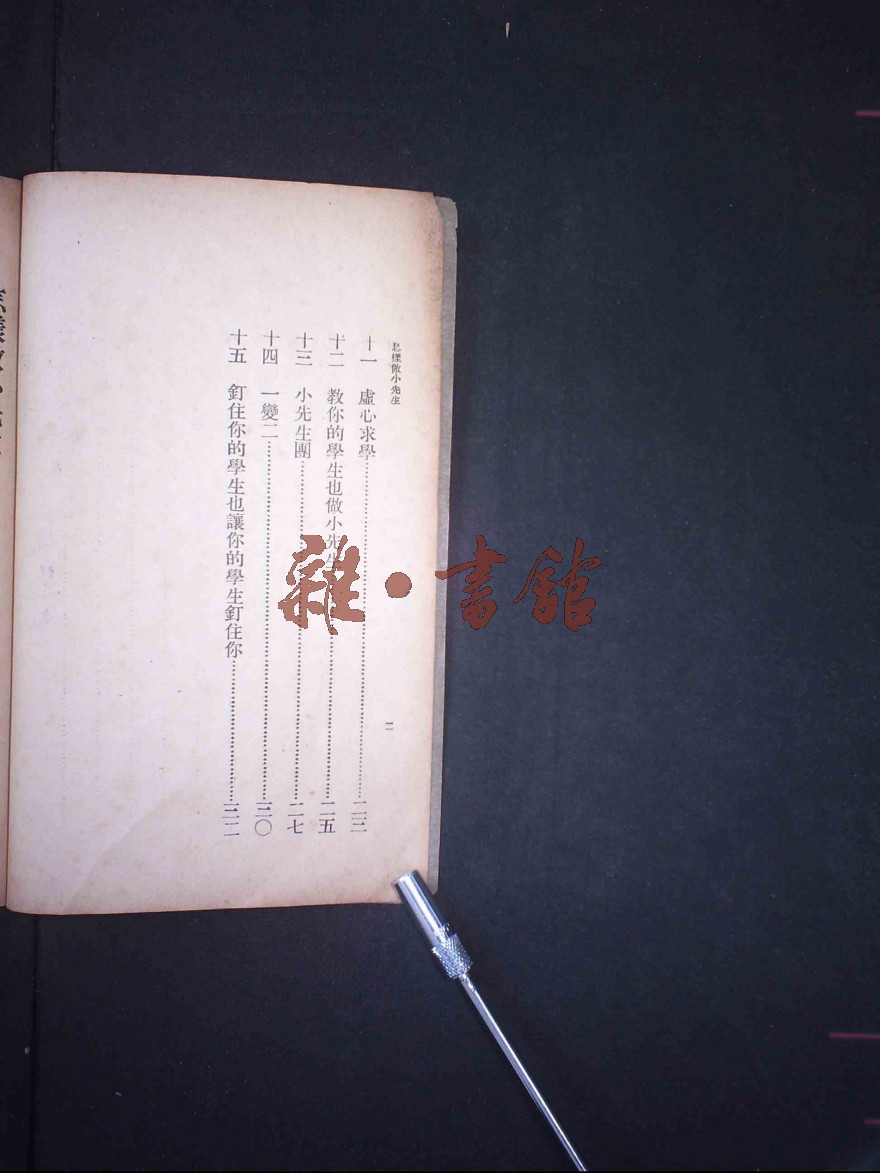 怎樣做小先生
二
十一 虛心求學……二三
十二 教你的學生也做小先生……二五
十三 小先生團……二七
十四 一變二……三〇
十五 釘住你的學生也讓你的學生釘住你……三二
雜·書館